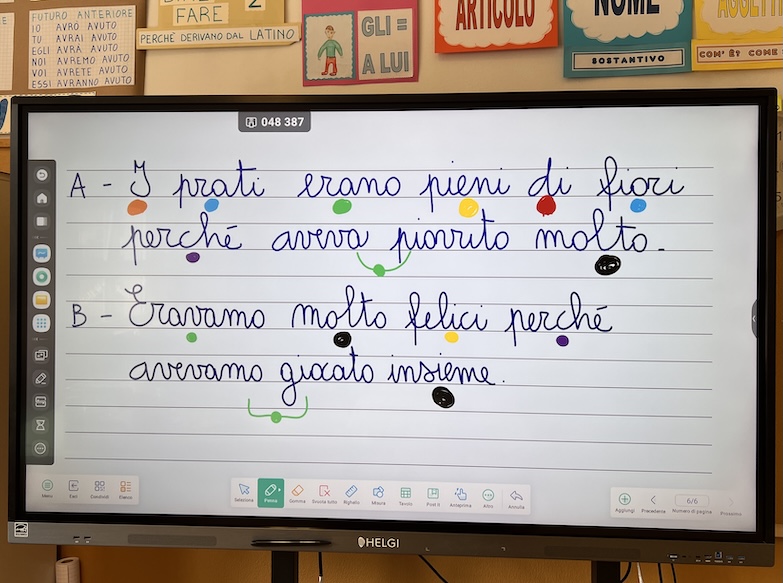 FUTURO ANTERIORE
IO AVRÒ AVUTO
TU AVRAI AVUTO
EGLI AVRÀ AVUTO
NOI AVREMO AVUTO
VOI AVRETE AVUTO
ESSI AVRANNO AVUTO
FARE
PERCHÉ DERIVANO DAL LATINO
GLI =
A LUI
ARTICOLO
NOME
SOSTANTIVO
COM'È? COME
048 387
A - I prati erano pieni di fiori
perché aveva piovuto molto.
B - Eravamo molto felici perché
avevamo giocato insieme.
Menu Esci Condividi Elenco
Seleziona Penna Gomma Righello Misura Tavolo Post it Anteprima Altro Annulla
Aggiungi Precedente 6/6 Numero di pagina Prossimo
HELGI